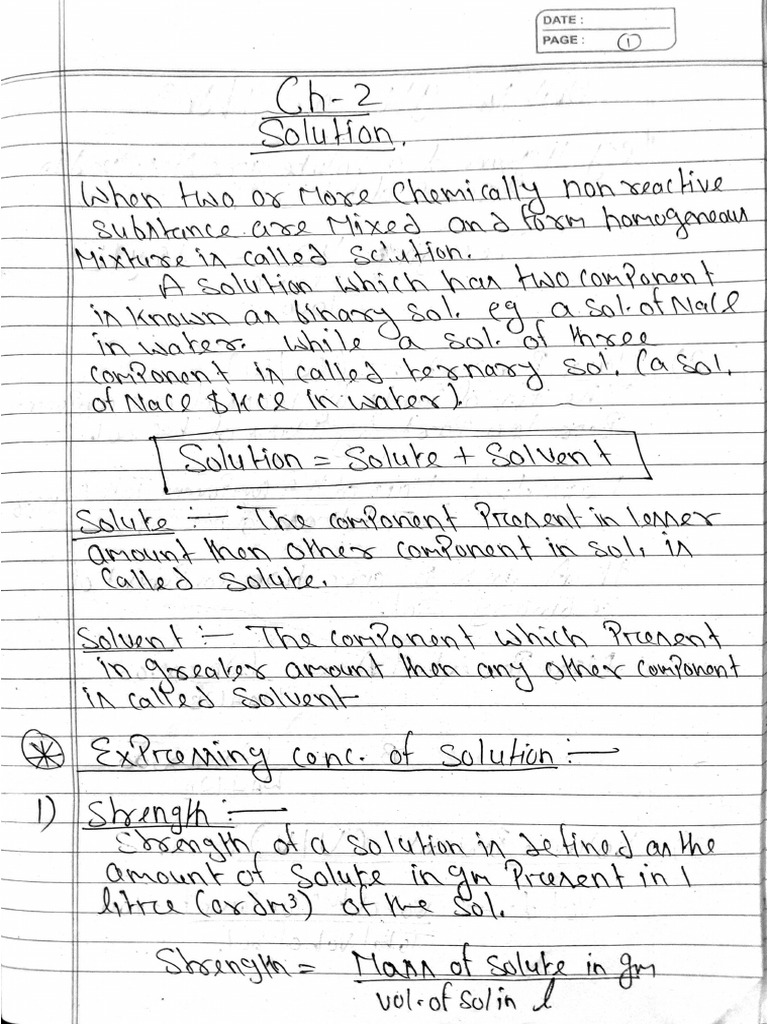 DATE :
PAGE : 1
Ch-2
Solution.
When two or More Chemically non reactive
substance are Mixed and form homogeneous
Mixture is called Solution.
A solution which has two comPonent
is known as binary sol. eg a sol. of NaCl
in water. While a sol. of three
comPonent is called ternary sol. (a sol.
of NaCl & KCl in water).
Solution = Solute + Solvent
Solute :- The comPonent Present in lesser
amount then other comPonent in sol. is
Called Solute.
Solvent :- The comPonent which Present
in greater amount then any other comPonent
is called Solvent
* ExPressing conc. of solution :-
1) Strength :-
Strength of a solution is defined as the
amount of solute in gm Present in 1
litre (or dm³) of the sol.
Strength = Mass of solute in gm
vol. of sol in l